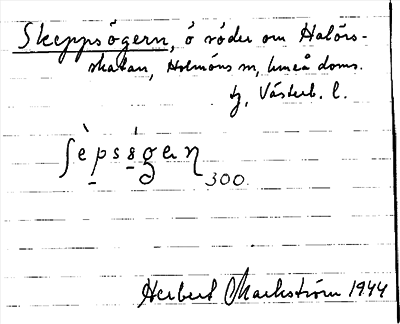 Skeppsögern, ö söder om Halörs-
skatan, Holmöns sn, Umeå doms.
tg, Västerb. l.
ʃèpsögeɳ 300
Herbert Markström 1944